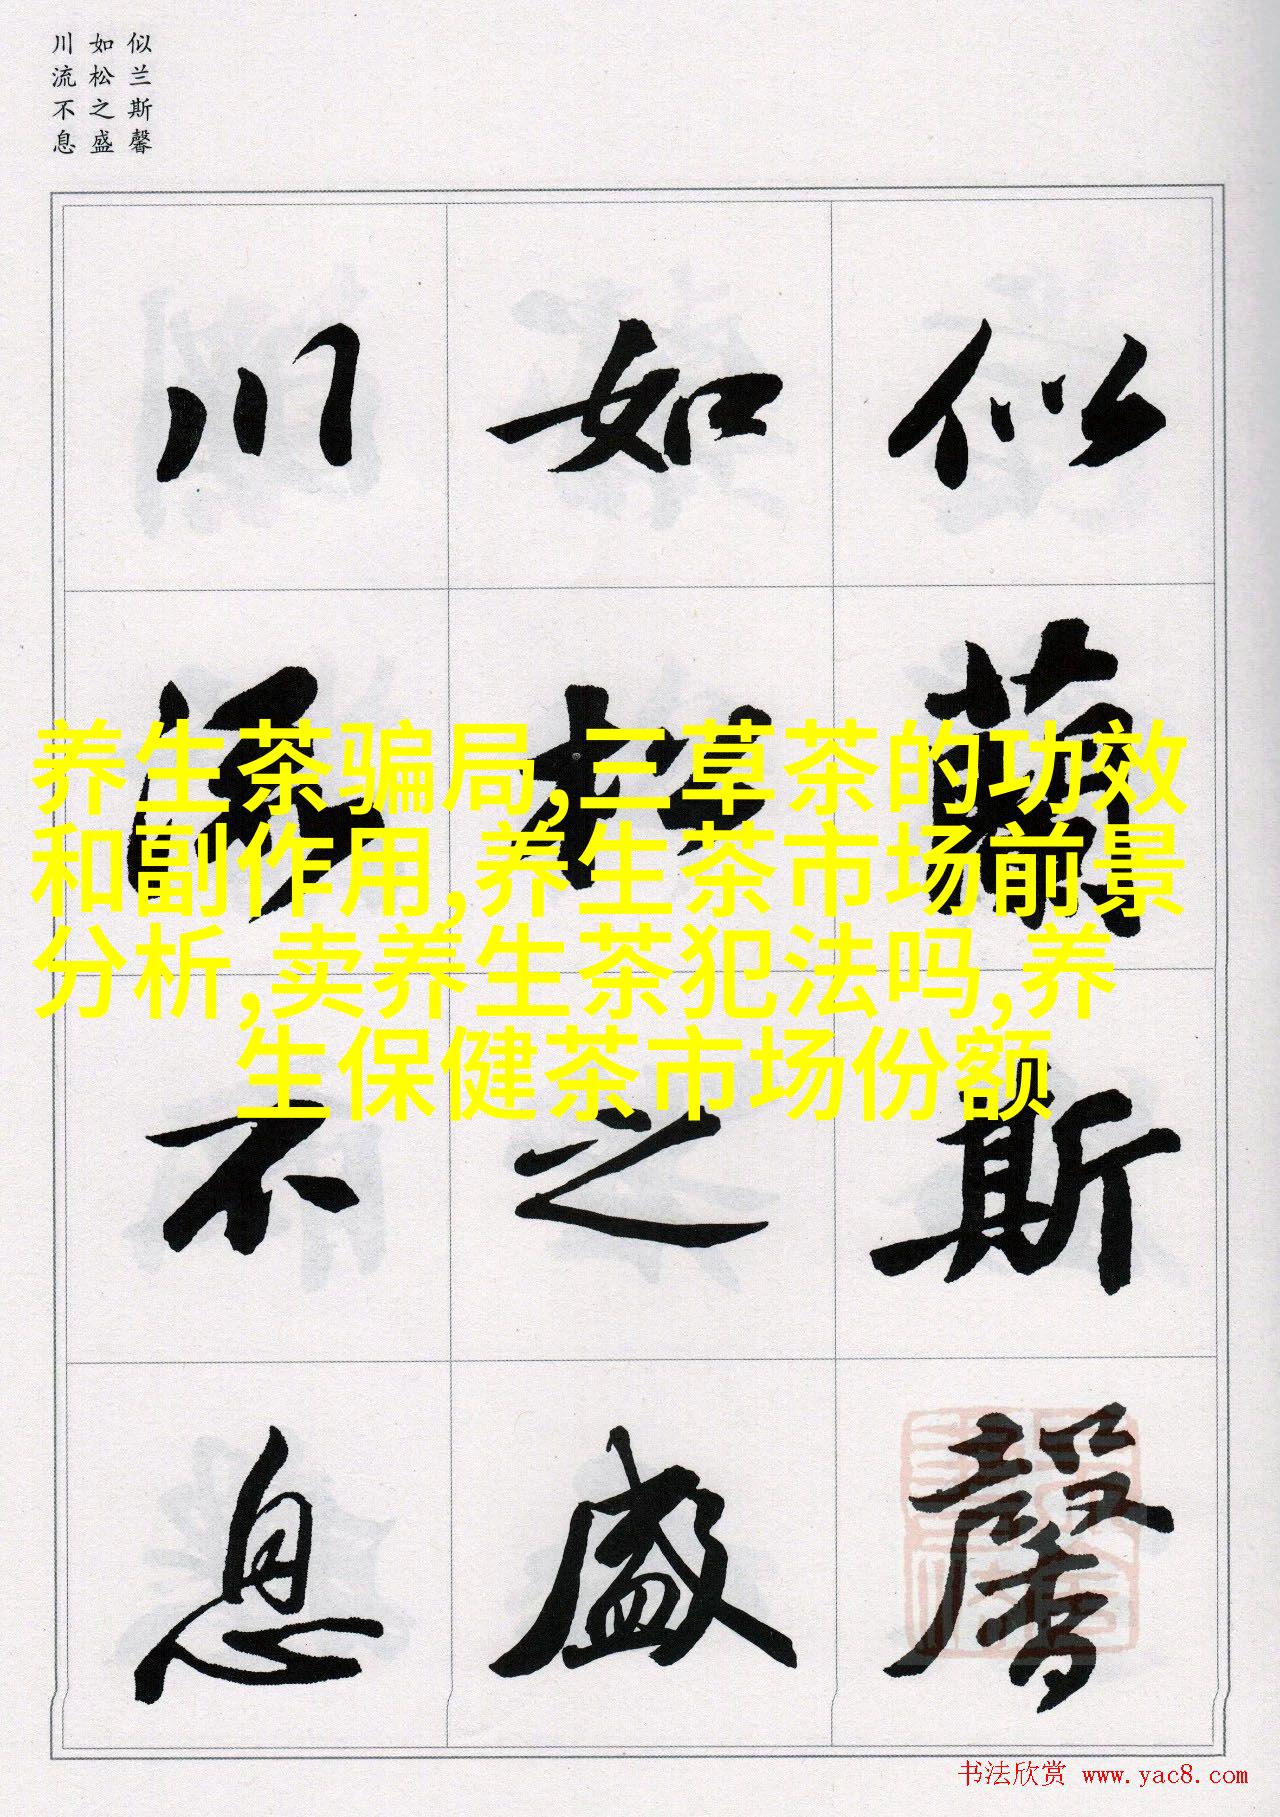 似兰斯馨
如松之盛
川流不息
似蘭斯馨
如松之盛
川流不息
养生茶骗局,三草茶的功效
和副作用,养生茶市场前景
分析,卖养生茶犯法吗,养
生保健茶市场份额
书法欣赏 www.yac8.com